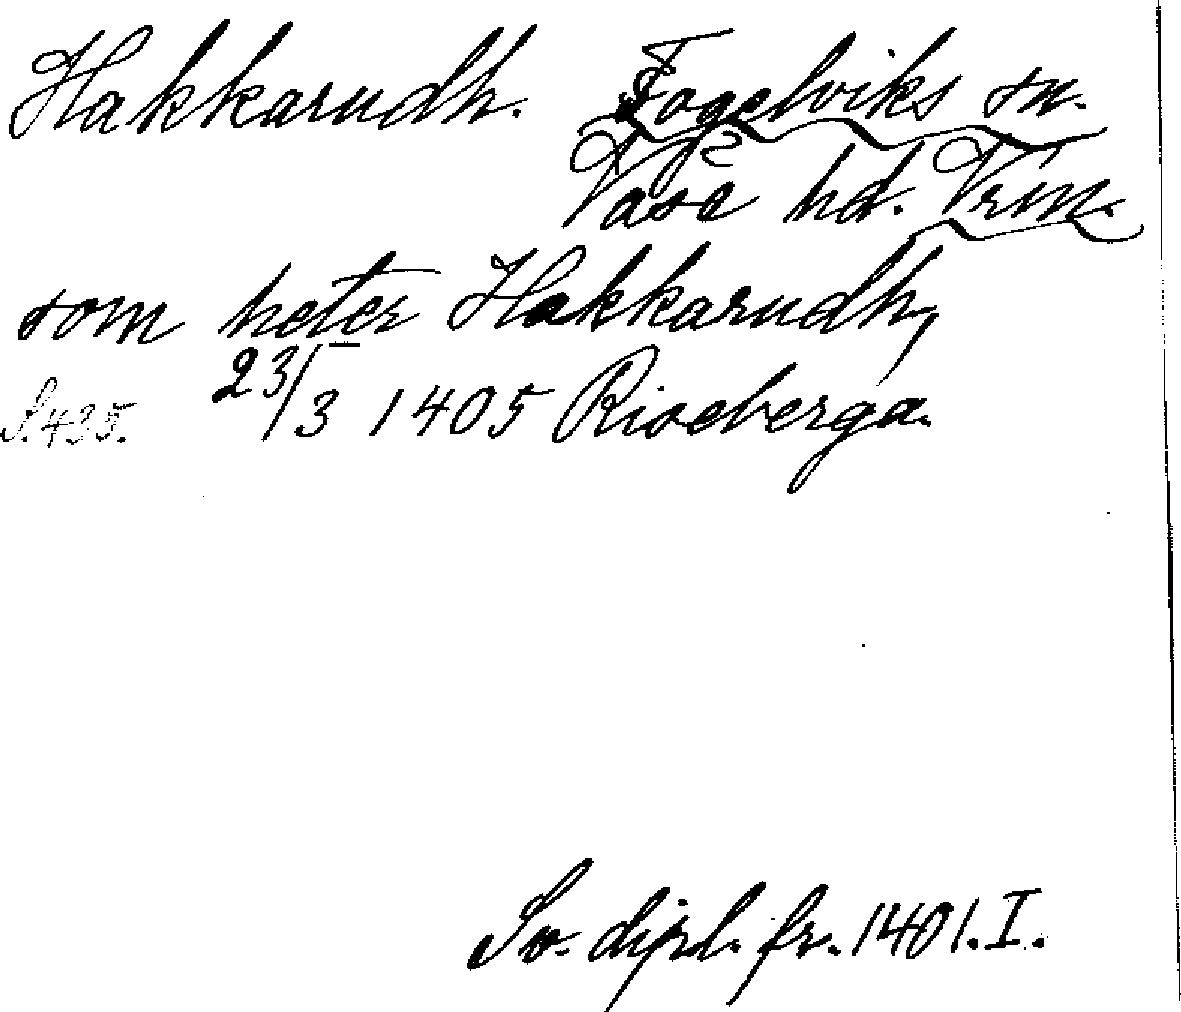 Hakkarudh. Fogelviks sn.
Väse hd. Vrm.
som heter Hakkarudh,
S. 435. 23/3 1405 Riseberga.
Sv. dipl. fr. 1401. I.